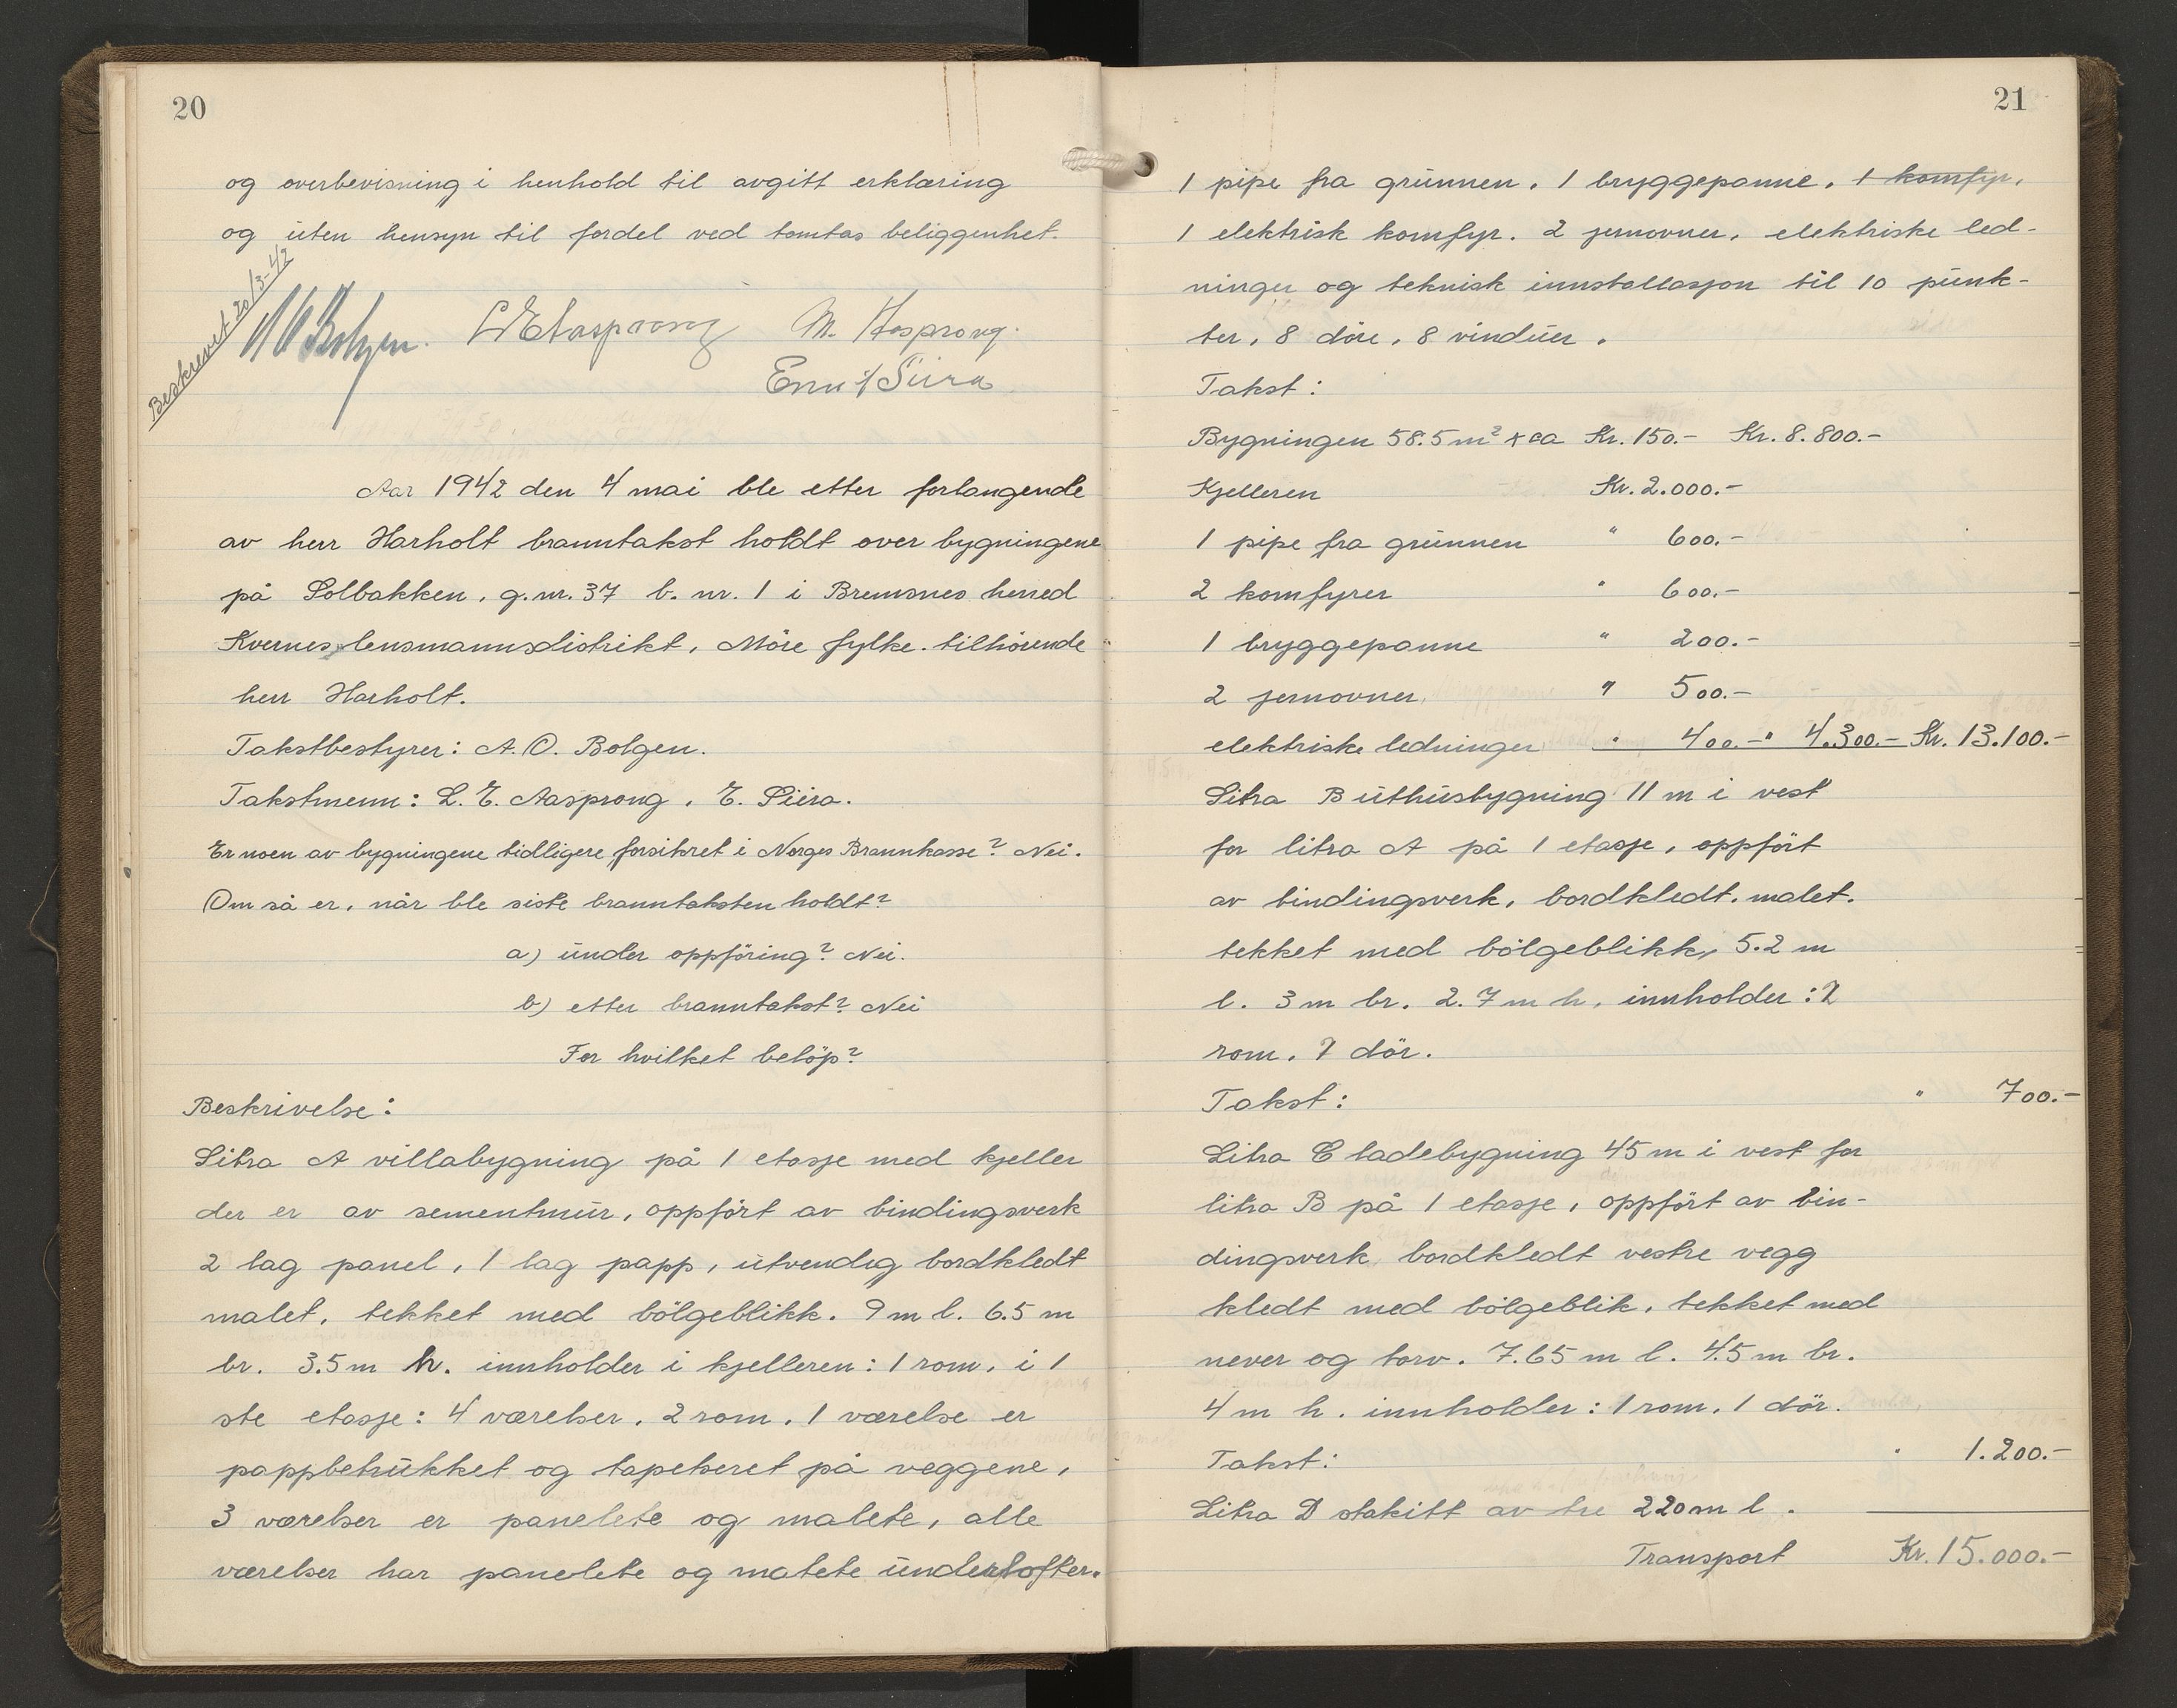 20
og overbevisning i henhold til avgitt erklæring
og uten hensyn til fordel ved tomtas beliggenhet.
Beskrevet 20/3-42
A O Bolgen. L E Aasprong M. Aasprong.
Siira
Aar 1942 den 4 mai ble etter forlangende
av herr Harholt branntakst holdt over bygningene
på Solbakken, g.nr. 37 b. nr. 1 i Bremsnes herred
Kvernes lensmannsdistrikt, Möre fylke. tilhörende
herr Harholt.
Takstbestyrer: A. O. Bolgen.
Takstmenn: L. E. Aasprong, E. Siira.
Er noen av bygningene tidligere forsikret i Norges Brannkasse? Nei.
Om så er, når ble siste branntaksten holdt?
a) under oppföring? Nei.
b) etter branntakst? Nei
For hvilket belöp?
Beskrivelse:
Litra A villabygning på 1 etasje med kjeller
der er av sementmur, oppfört av bindingsverk
2 lag panel, 1 lag papp, utvendig bordkledt
malet, tekket med bölgeblikk. 9 m l. 6.5 m
br. 3.5 m h. innholder i kjelleren: 1 rom, i 1
ste etasje: 4 værelser, 2 rom. 1 værelse er
pappbetrukket og tapetseret på veggene,
3 værelser er panelete og malete, alle
værelser har panelete og malete underlofter.
21
1 pipe fra grunnen. 1 bryggepanne. 1 komfyr.
1 elektrisk komfyr. 2 jernovner, elektriske led-
ninger og teknisk innstallasjon til 10 punk-
ter, 8 döre, 8 vinduer.
Takst:
Bygningen 58.5 m² x ca Kr. 150.- Kr. 8.800.-
Kjelleren Kr. 2.000.-
1 pipe fra grunnen " 600.-
2 komfyrer " 600.-
1 bryggepanne " 200.-
2 jernovner " 500.-
elektriske ledninger " 400.- " 4.300.- Kr. 13.100.-
Litra B uthusbygning 11 m i vest
for litra A på 1 etasje, oppfört
av bindingsverk, bordkledt, malet.
tekket med bölgeblikk, 5.2 m
l. 3 m br. 2.7 m h. innholder: 2
rom. 2 dör.
Takst: " 700.-
Litra C ladebygning 45 m i vest for
litra B på 1 etasje, oppfört av bin-
dingsverk bordkledt vestre vegg
kledt med bölgeblik, tekket med
never og torv. 7.65 m l. 4.5 m br.
4 m h. innholder: 1 rom. 1 dör.
Takst: " 1.200.-
Litra D stakitt av tre 220 m l.
Transport Kr. 15.000.-